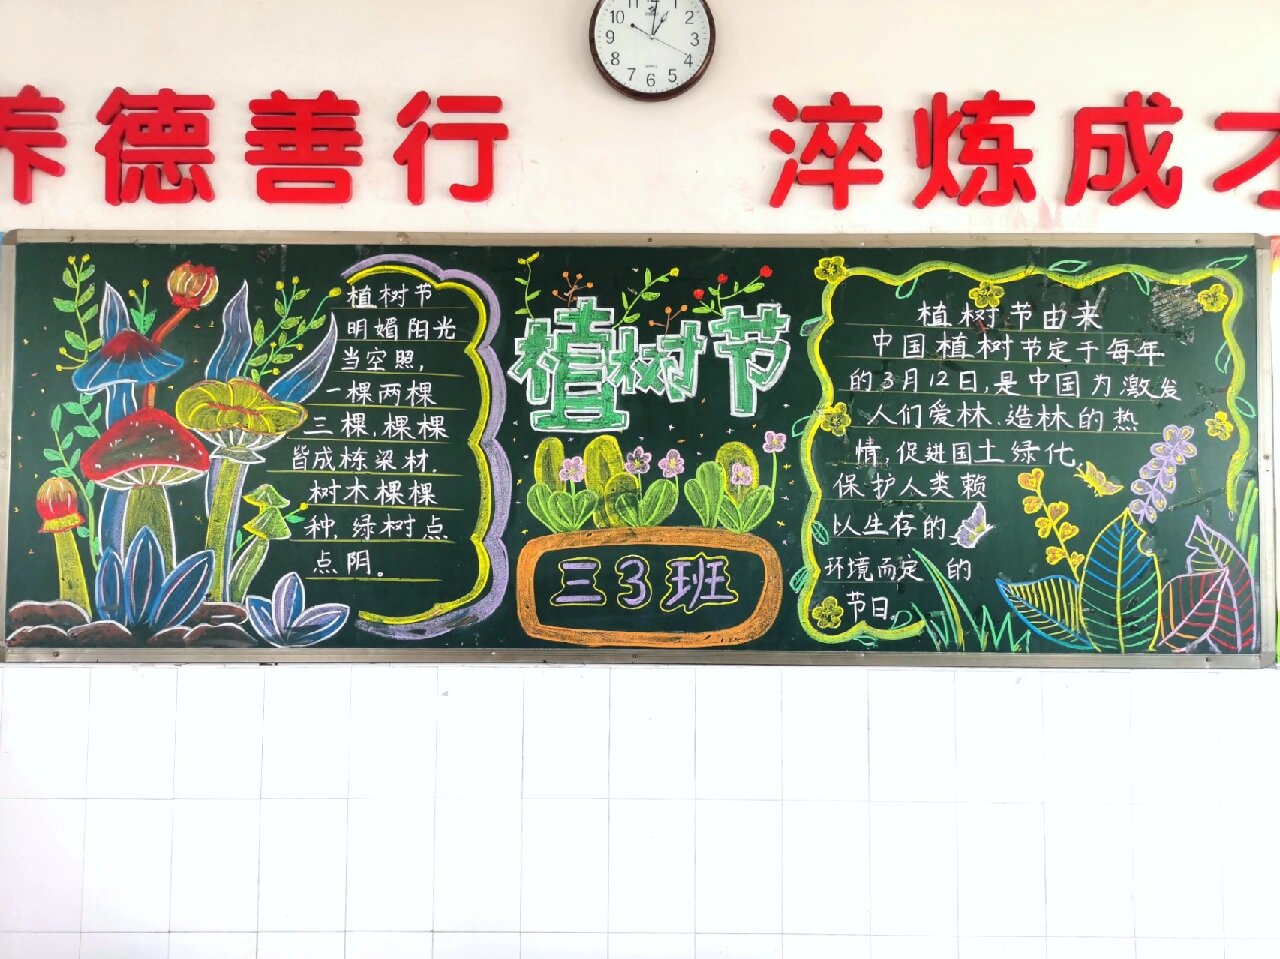 养德善行
淬炼成才
10
2
9
3
8
4
7
6
5
植树节
明媚阳光
当空照,
一棵两棵
三棵,棵棵
皆成栋梁材.
树木棵棵
种,绿树点
点阴。
植树节
三3班
植树节由来
中国植树节定于每年
的3月12日,是中国为激发
人们爱林、造林的热
情,促进国土绿化,
保护人类赖
以生存的
环境而定的
节日。